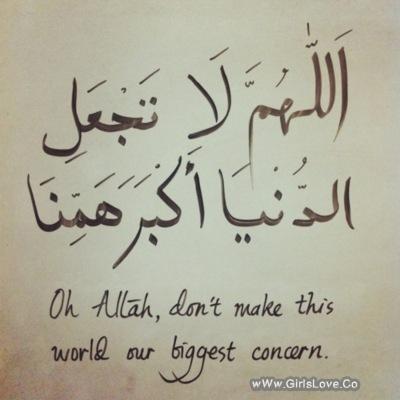 اَللّٰهُمَّ لَا تَجْعَلِ
الدُّنْيَا أَكْبَرَ هَمِّنَا
Oh Allāh, don't make this
world our biggest concern.
www.GirlsLove.Co